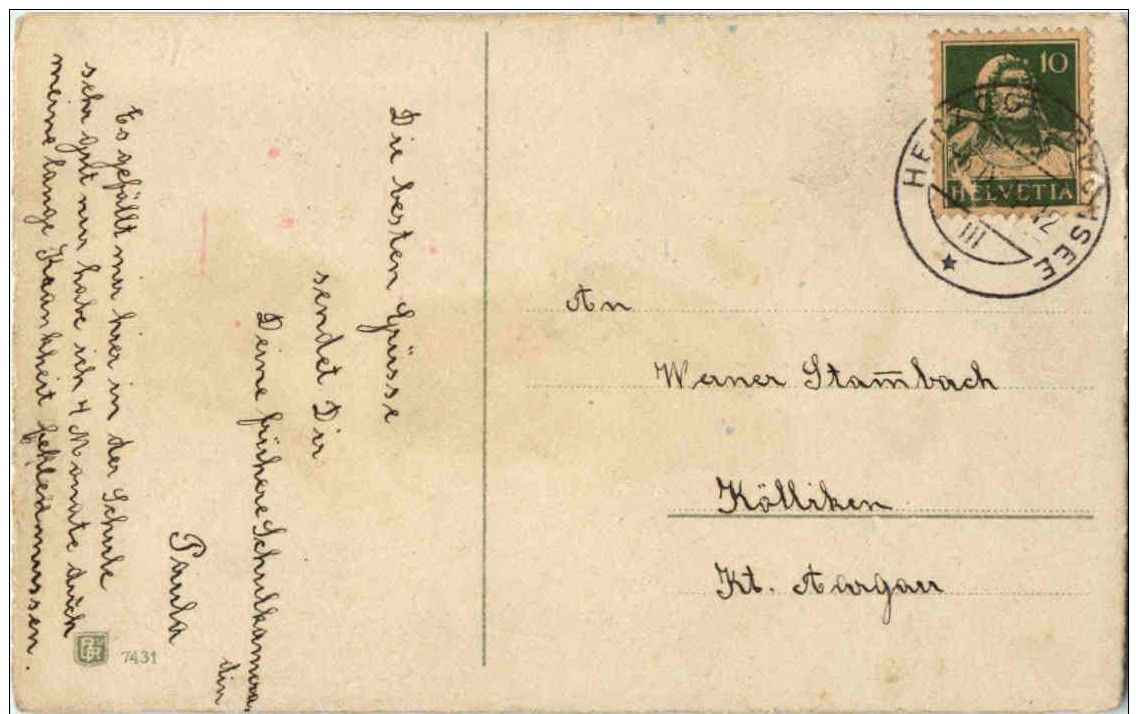 Die besten Grüsse
sendet Dir
Deine frühere Schulkamera,
din
Paula
Es gefällt mir hier in der Schule
sehr gut nur habe ich 4 Monate durch
meine lange Krankheit fehlen müssen.
7431
10
HELVETIA
III
SEE
An
Werner Stam̅bach
Kölliken
Kt. Aargau